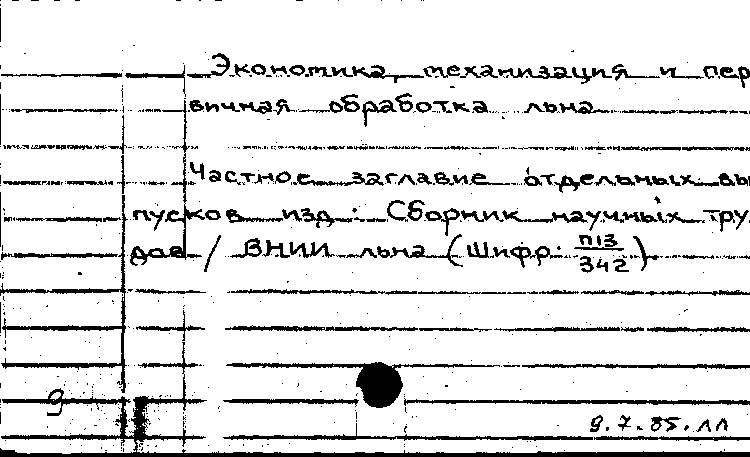 Экономика, механизация и пер
вичная обработка льна
Частное заглавие отдельных вы
пусков изд.: Сборник научных тру
дов / ВНИИ льна (Шифр. П13/342)
9
9.7.85. лл